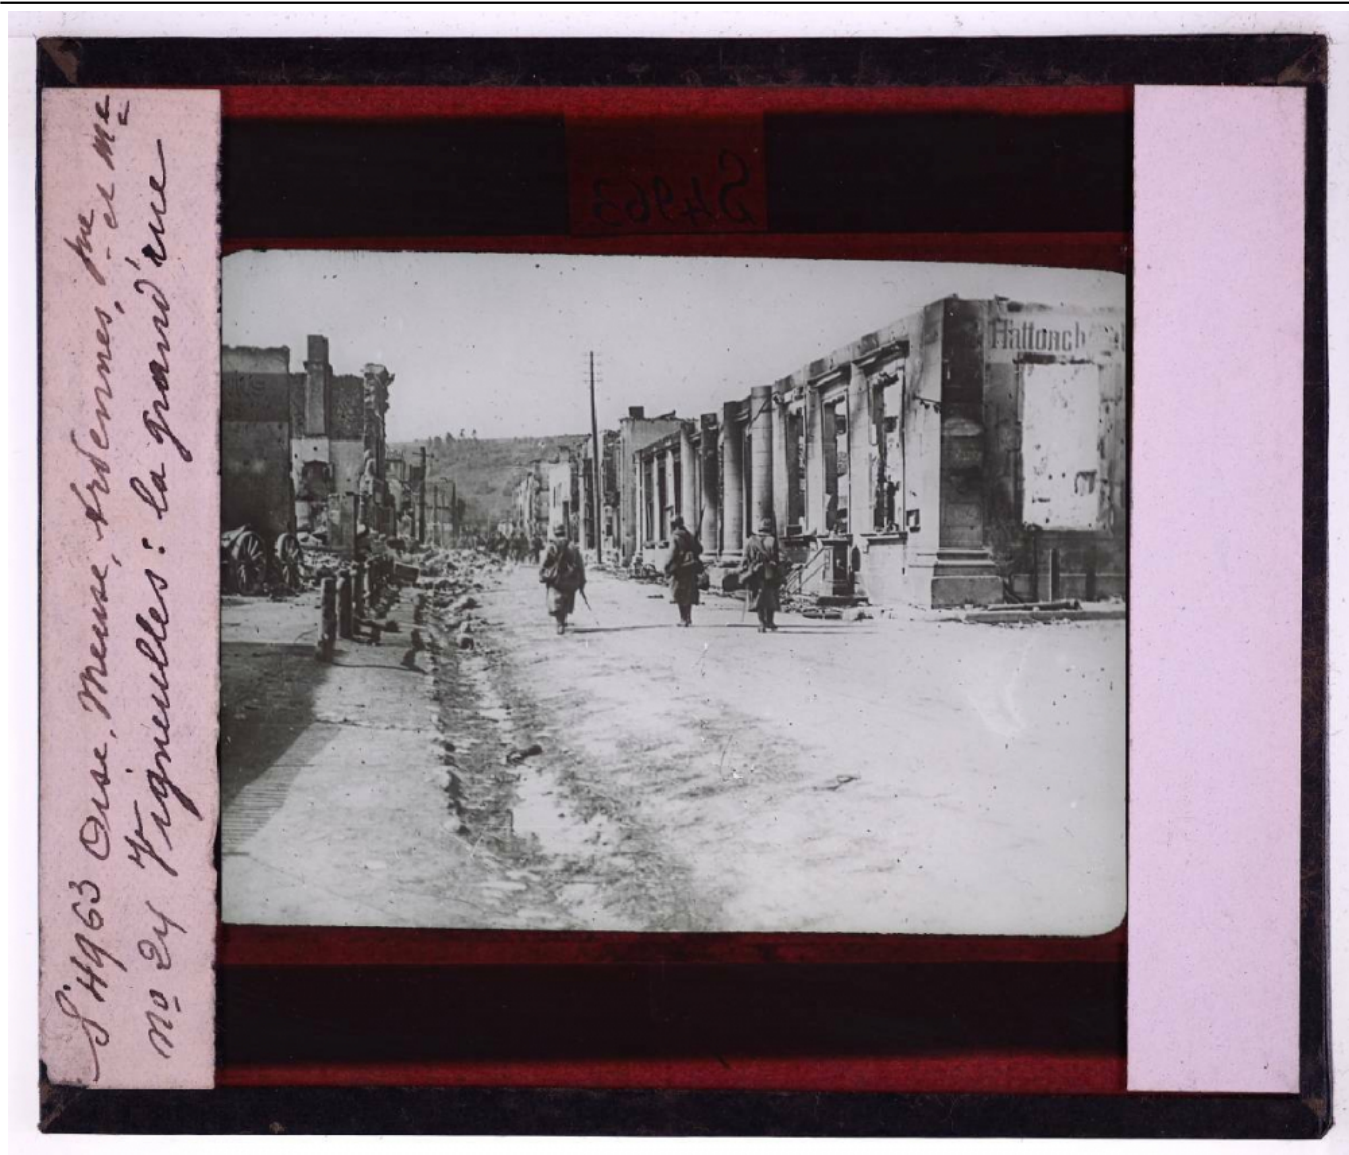 S 4963 Oise, Meuse, Ardennes, Mne et Me
No 24 Vigneulles : la grand'rue
S4963
Hattonch